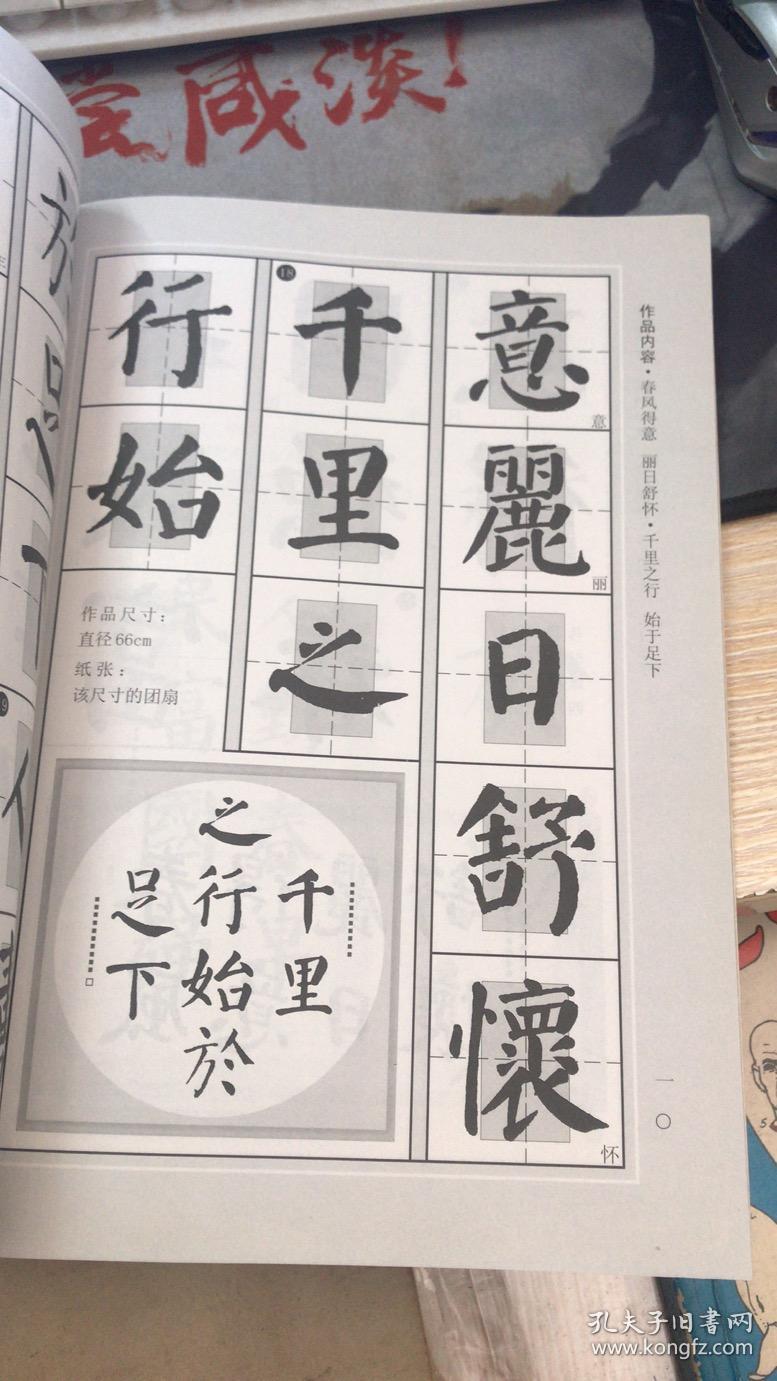 咸淡!
作品内容·春风得意 丽日舒怀·千里之行 始于足下
一〇
意麗日舒懷
意
丽
怀
18
千里之
行始
作品尺寸：
直径66cm
纸张：
该尺寸的团扇
千里
之行始於
足下
於足下
孔夫子旧书网
www.kongfz.com